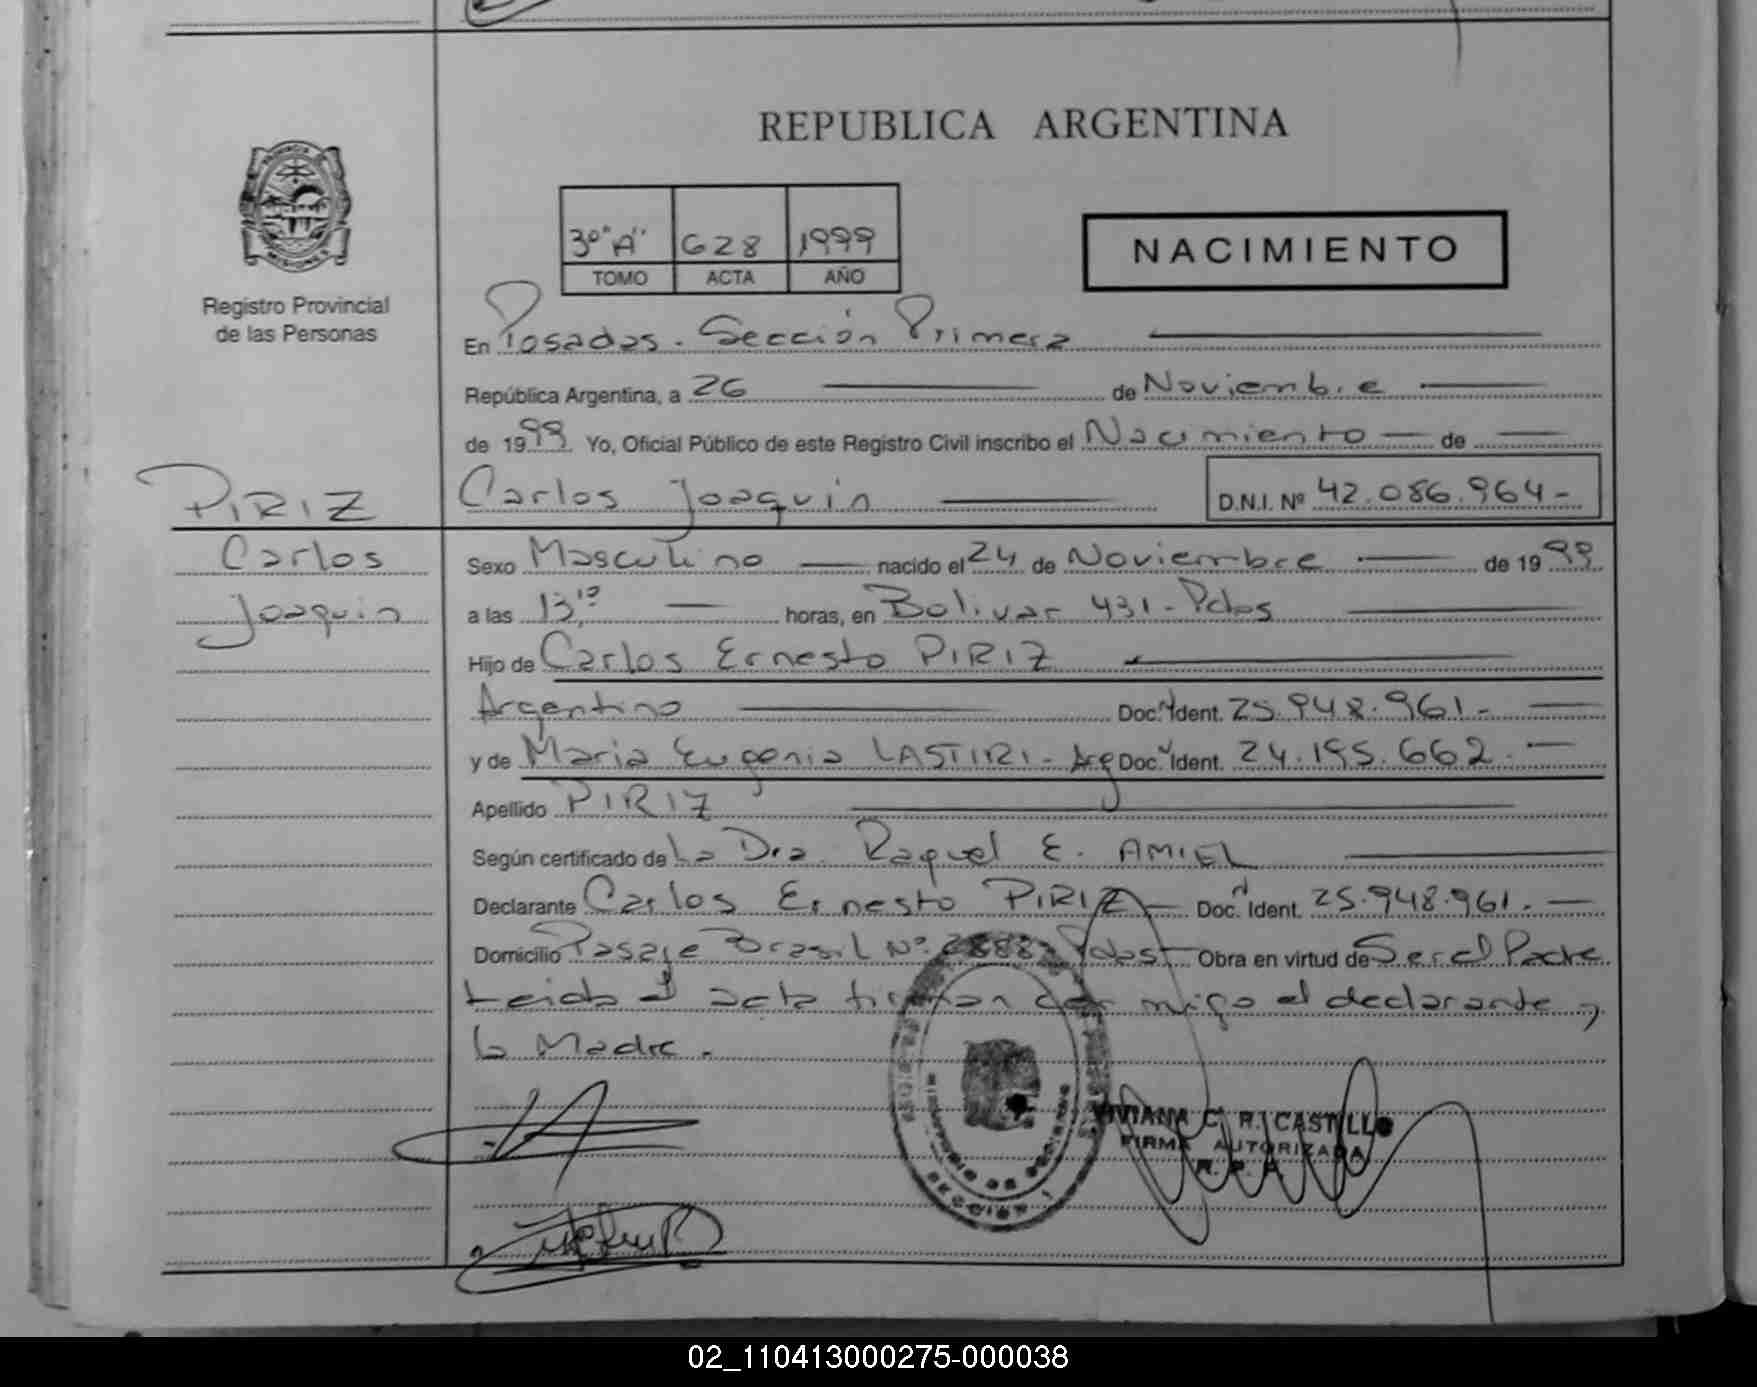 REPUBLICA ARGENTINA
3º "A" 628 1999
TOMO ACTA AÑO
NACIMIENTO
Registro Provincial
de las Personas
En Posadas. Sección Primera
República Argentina, a 26 de Noviembre
de 1999 Yo, Oficial Público de este Registro Civil inscribo el Nacimiento de
PIRIZ
Carlos Joaquin D.N.I. Nº 42.086.964-
Carlos
Joaquin
Sexo Masculino nacido el 24 de Noviembre de 1999
a las 13,10 horas, en Bolivar 431 - Pdas
Hijo de Carlos Ernesto PIRIZ
Argentino Doc. Ident. 25.948.961.-
y de Maria Eugenia LASTIRI - Arg Doc. Ident. 24.195.662.
Apellido PIRIZ
Según certificado de La Dra. Raquel E. AMIEL
Declarante Carlos Ernesto PIRIZ - Doc. Ident. 25.948.961.-
Domicilio Pasaje Brasil Nº Pdas - Obra en virtud de Ser el Padre
Leida el acta firman con migo el declarante y
la Madre.
VIVIANA C. R. CASTILLO
FIRMA AUTORIZADA
R. P.
SECCION 1
02_110413000275-000038